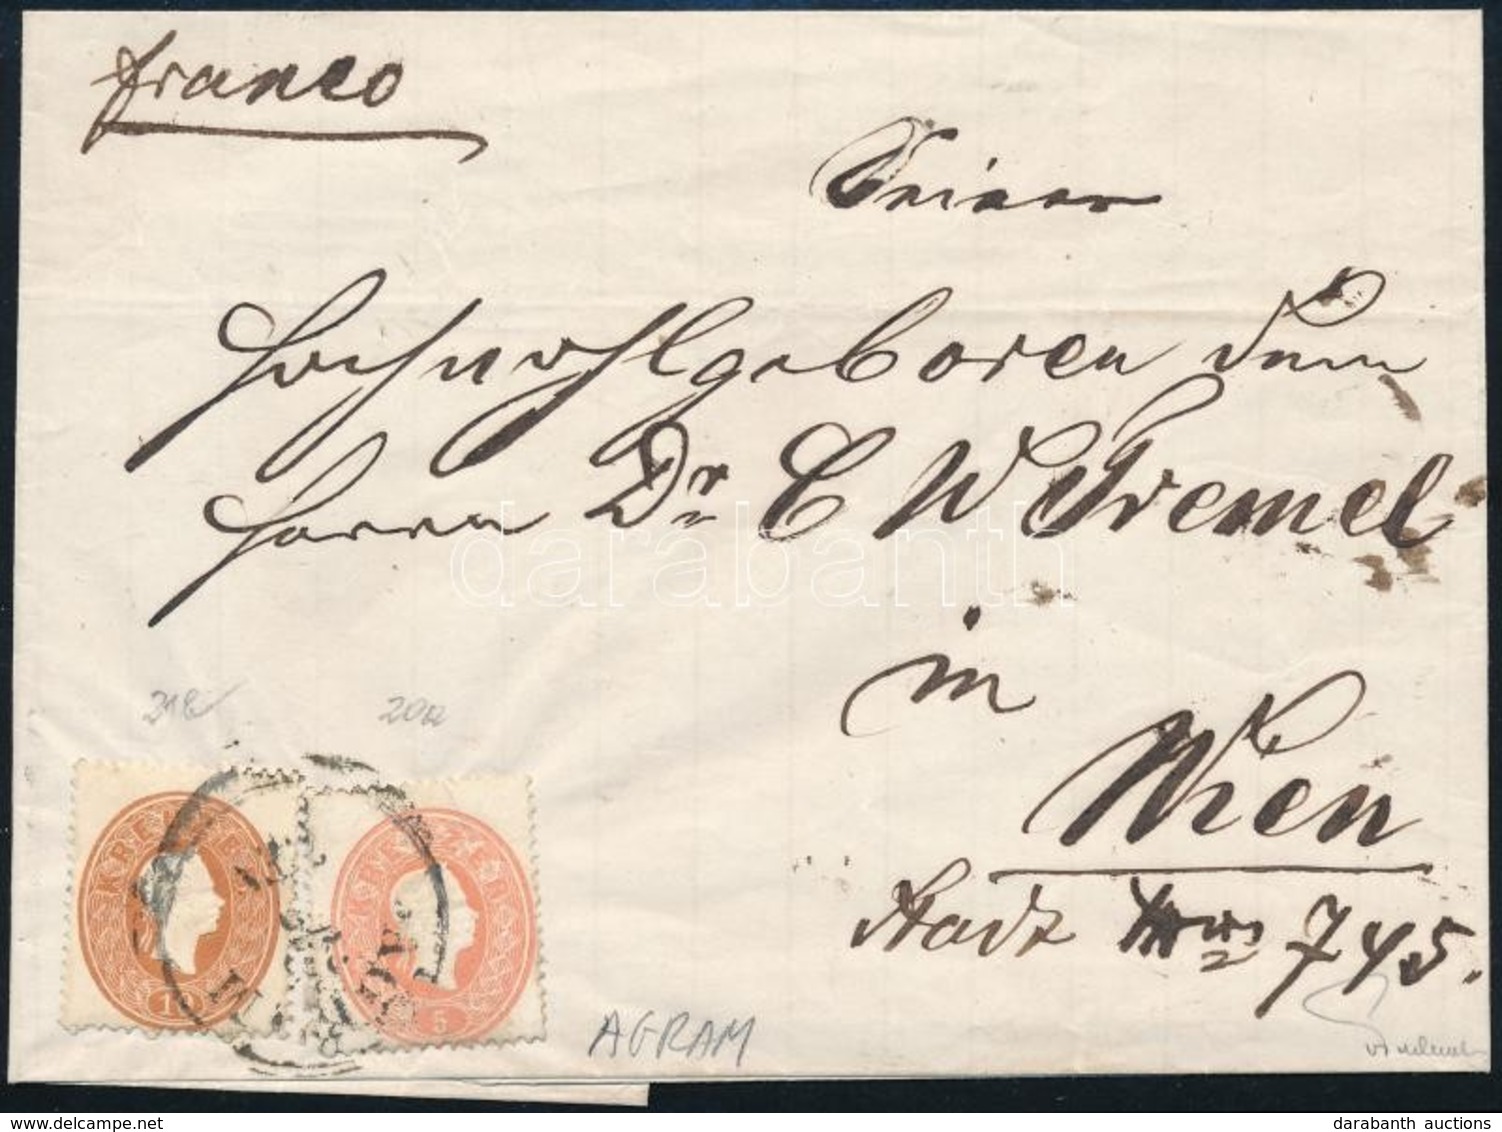 franco
Seiner
Hochwohlgeboren dem
Herrn Dr C W Tremel
in
Wien
Stadt Nro 745.
20a
KREUZER
10
KREUZER
5
AGRAM
darabanth
www.delcampe.net
darabanth auctions